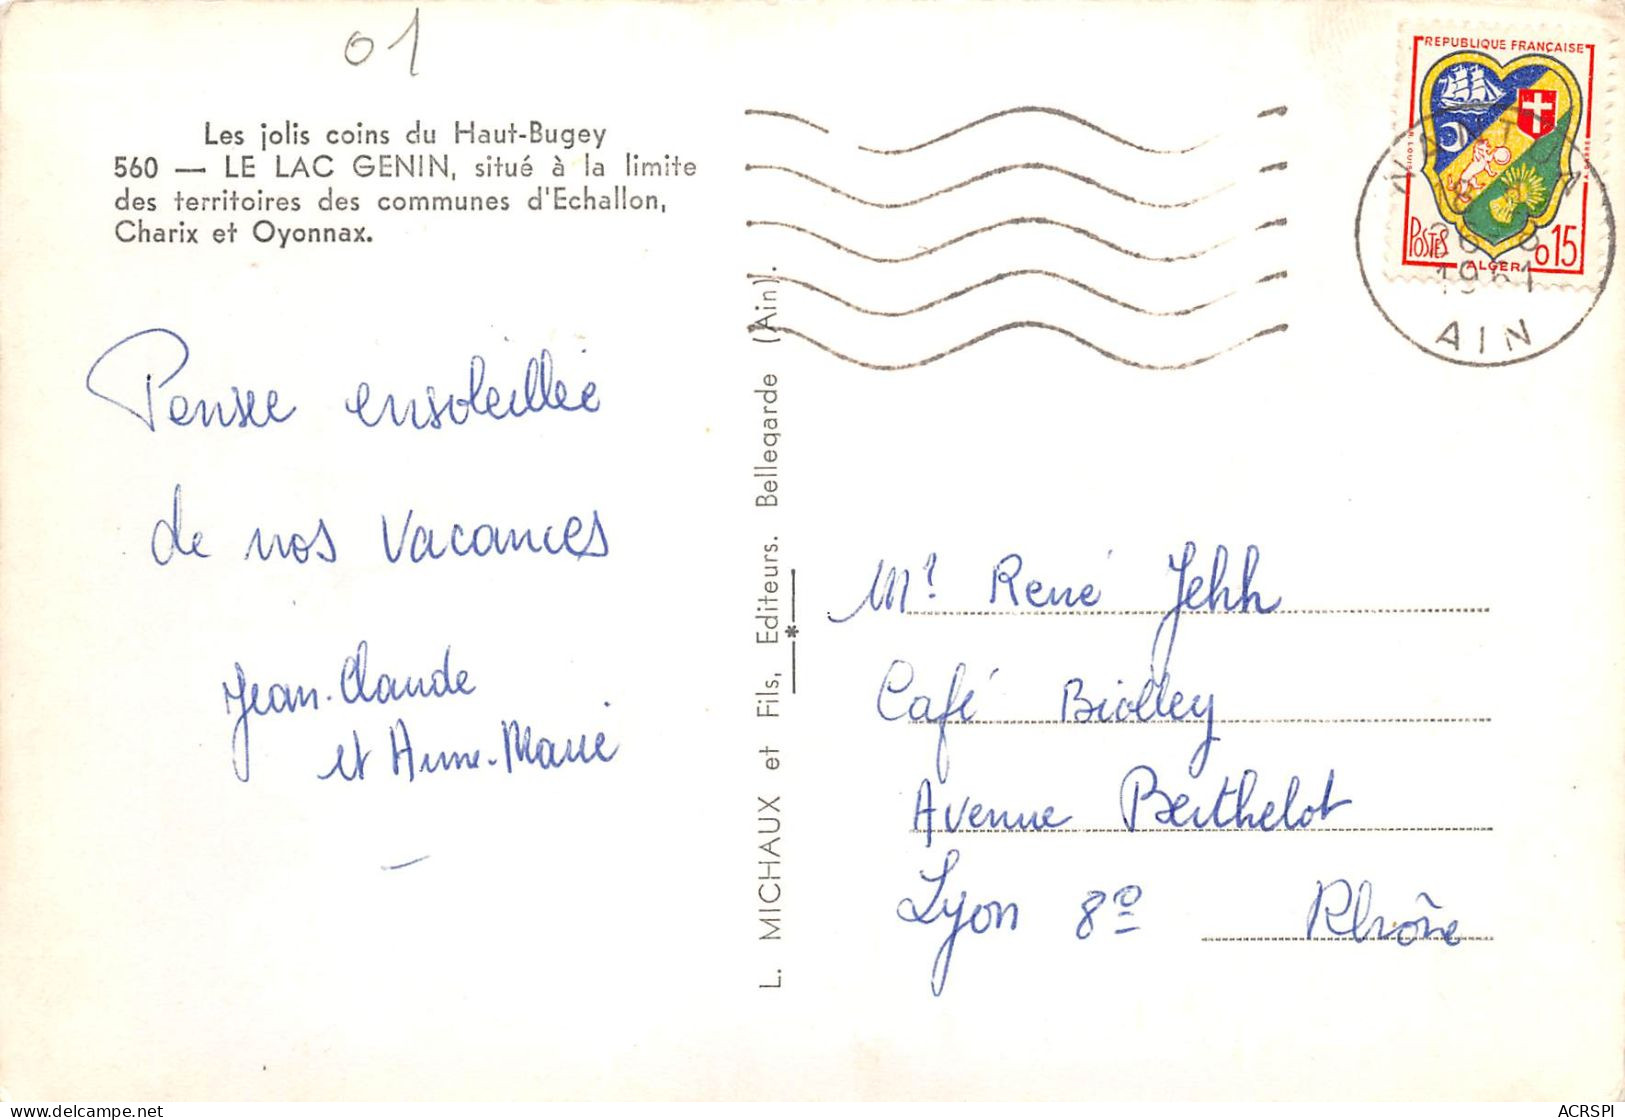 01
Les jolis coins du Haut-Bugey
560 — LE LAC GENIN, situé à la limite
des territoires des communes d'Echallon,
Charix et Oyonnax.
Pensée ensoleillée
de nos vacances
Jean-Claude
et Anne-Marie
L. MICHAUX et Fils, Editeurs. Bellegarde (Ain).
REPUBLIQUE FRANÇAISE
POSTES
ALGER
0,15
1961
AIN
Mr René Jehh
Café Biolley
Avenue Berthelot
Lyon 8e Rhône
ACRSPI